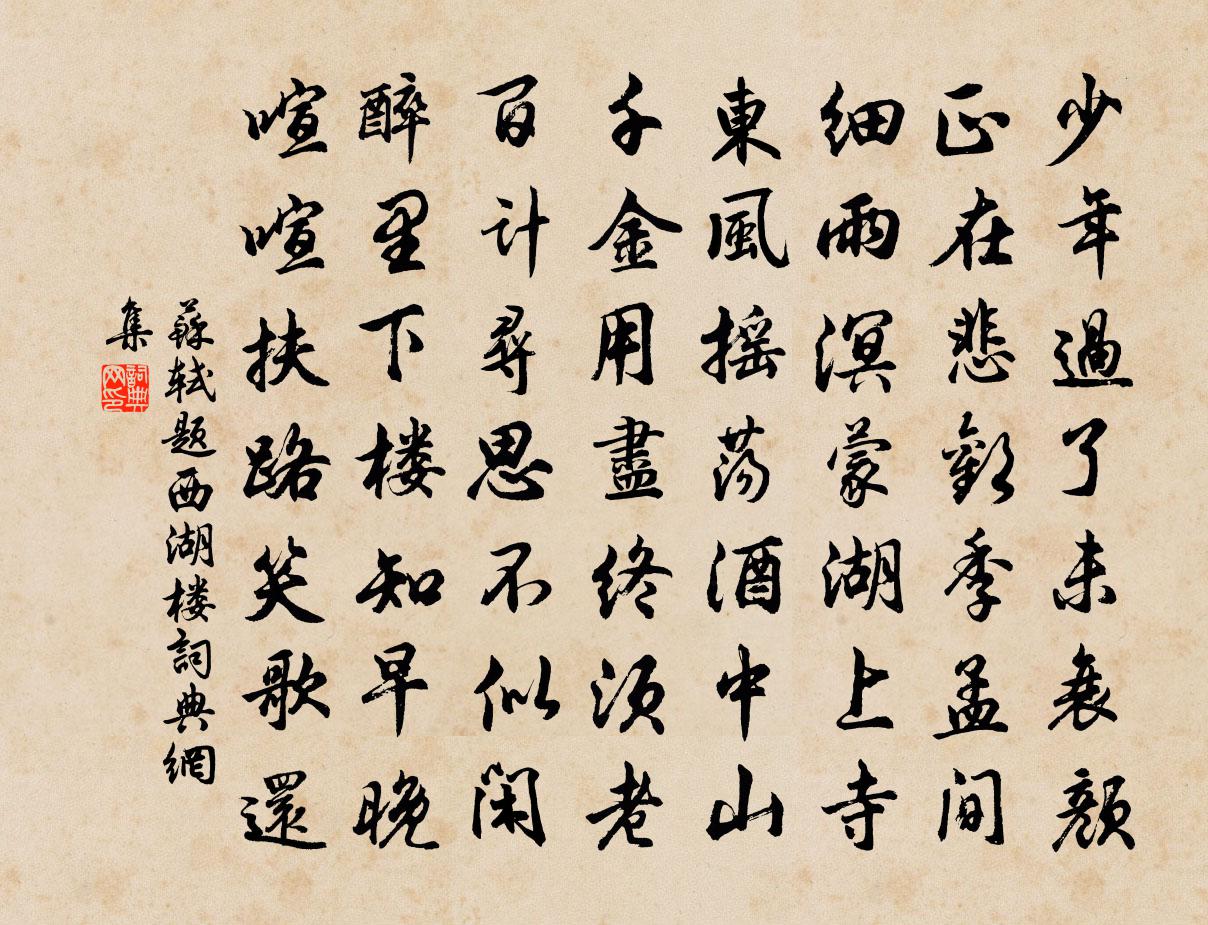 少年過了未衰顏
正在悲歡季孟間
細雨溟蒙湖上寺
東風摇荡酒中山
千金用盡終須老
百计尋思不似閑
醉里下楼知早晚
喧喧扶路笑歌還
蘇軾题西湖楼詞典網
集
詞典
网印